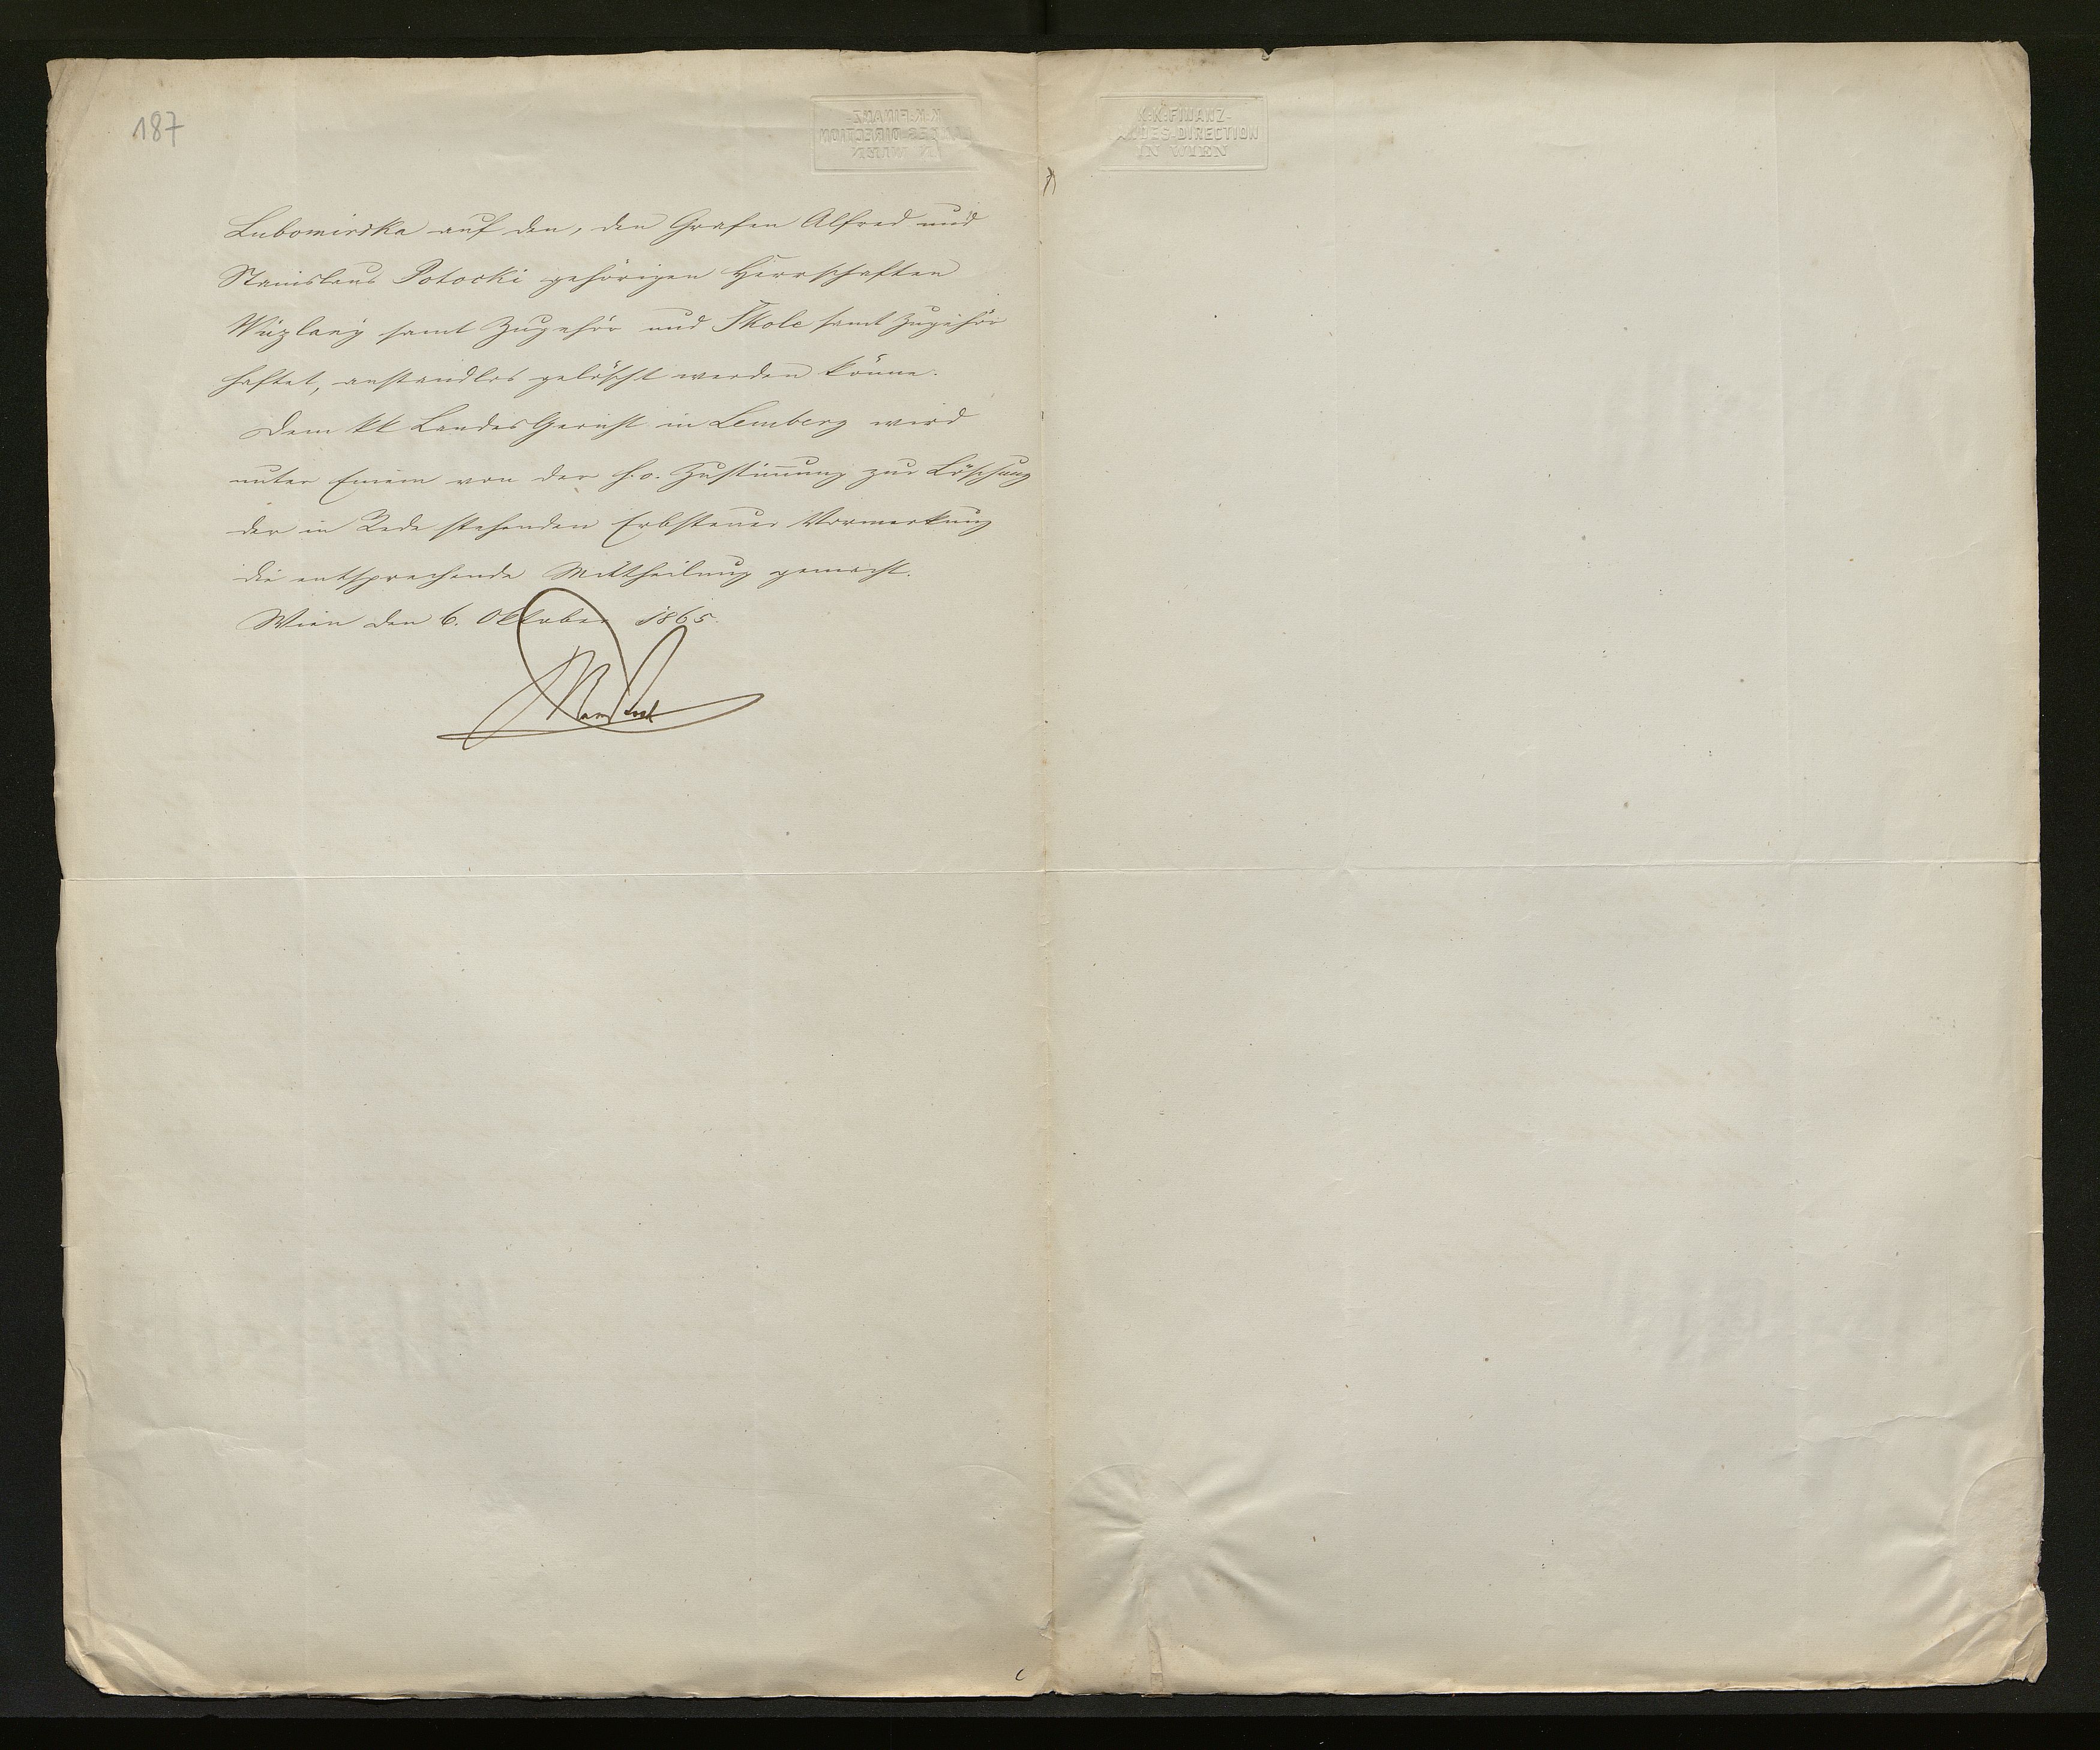 187
K.K. FINANZ-
LANDES-DIRECTION
IN WIEN
Lubomirska auf den, den Grafen Alfred und
Stanislaus Potocki gehörigen Herrschaften
samt Zugehör und Skole samt Zugehör
haftet, anstandlos gelöscht werden könne.
Dem kk Landes Gericht in Lemberg wird
unter Einem von der h. o. Zustimmung zur Löschung
der in Rede stehenden Erbsteuer Vormerkung
die entsprechende Mittheilung gemacht.
Wien den 6. Oktober 1865.